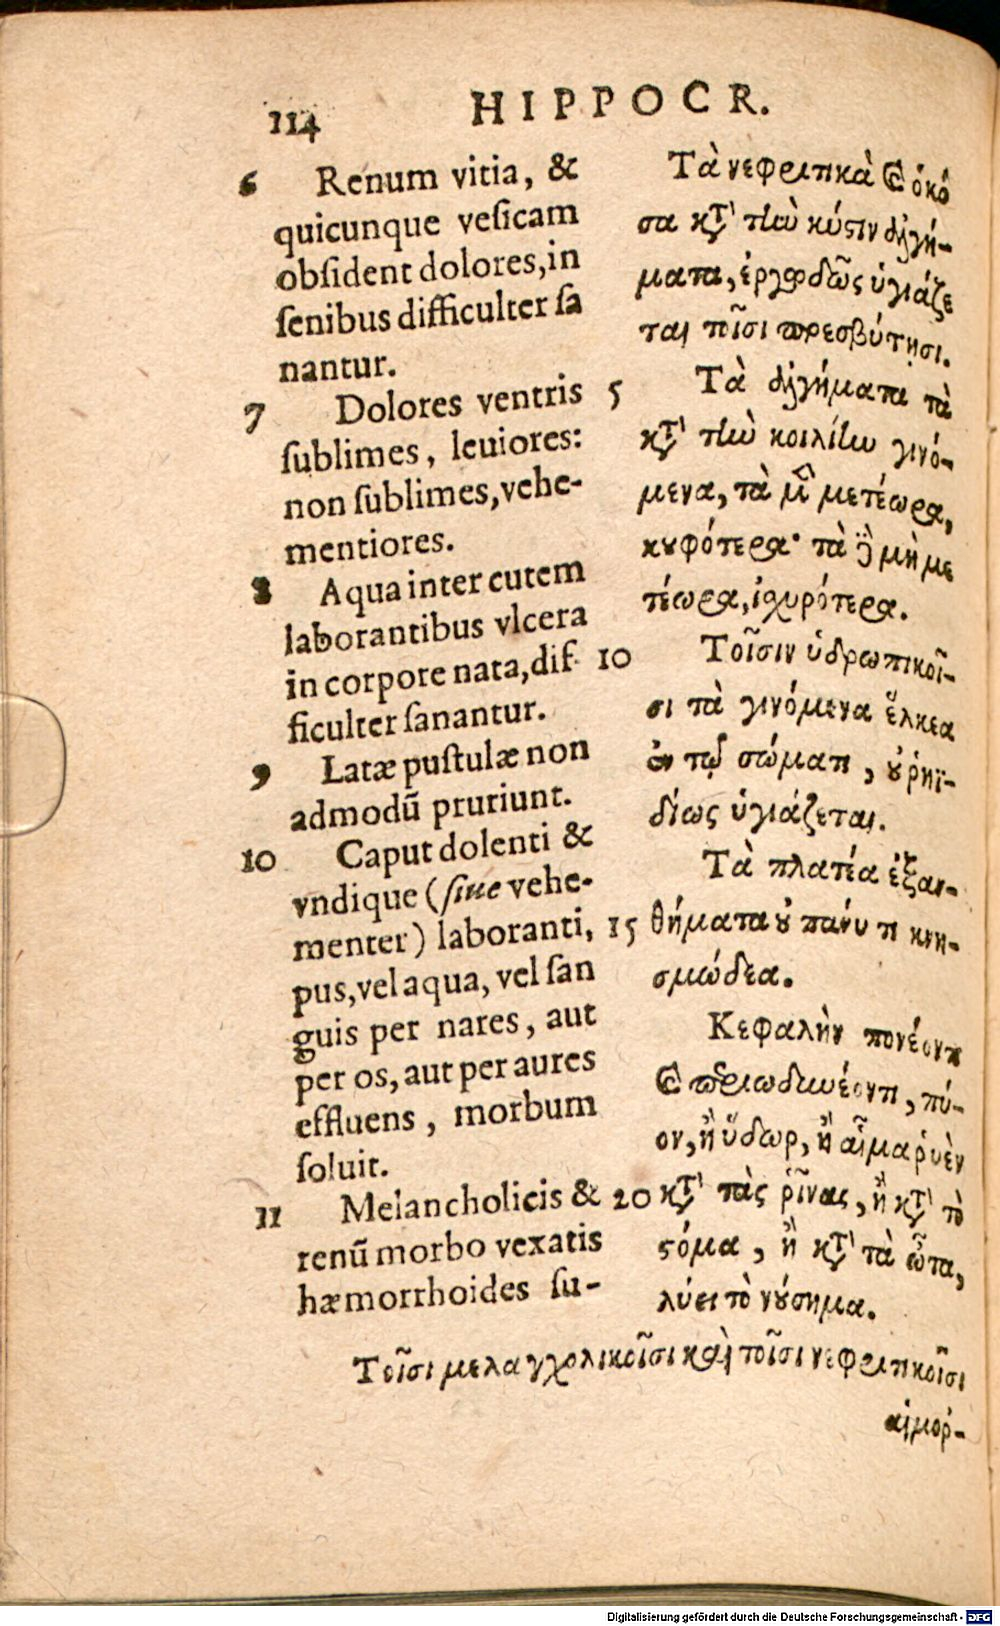 114
HIPPOCR.
6 Renum vitia, &
quicunque vesicam
obsident dolores, in
senibus difficulter sa
nantur.
7 Dolores ventris
sublimes, leuiores:
non sublimes, vehe-
mentiores.
8 Aqua inter cutem
laborantibus vlcera
in corpore nata, dif-
ficulter sanantur.
9 Latæ pustulæ non
admodū pruriunt.
10 Caput dolenti &
vndique (siue vehe-
menter) laboranti,
pus, vel aqua, vel san
guis per nares, aut
per os, aut per aures
effluens, morbum
soluit.
11 Melancholicis &
renū morbo vexatis
hæmorrhoides su-
Τὰ νεφριτικὰ ϗ ὁκό
σα κτ' τὴν κύστιν ἀλγή-
ματα, ἐργωδῶς ὑγιάζε
ται τοῖσι πρεσβύτῃσι.
5 Τὰ ἀλγήματα τὰ
κτ' τὴν κοιλίην γινό-
μενα, τὰ μ̂ μετέωρα,
κουφότερα· τὰ δ̈ μὴ με
τέωρα, ἰσχυρότερα.
10 Τοῖσιν ὑδρωπικοῖ-
σι τὰ γινόμενα ἕλκεα
ἐν τῷ σώματι, οὐ ρηϊ-
δίως ὑγιάζεται.
Τὰ πλατέα ἐξαν-
15 θήματα οὐ πάνυ τι κνη-
σμώδεα.
Κεφαλὴν πονέοντι
ϗ περιωδυνέοντι, πύ-
ον, ἢ ὕδωρ, ἢ αἷμα ῥυὲν
20 κτ' τὰς ῥῖνας, ἢ κτ' τὸ
στόμα, ἢ κτ' τὰ ὦτα,
λύει τὸ νούσημα.
Τοῖσι μελαγχολικοῖσι καὶ τοῖσι νεφριτικοῖσι
αἱμορ-
Digitalisierung gefördert durch die Deutsche Forschungsgemeinschaft - DFG